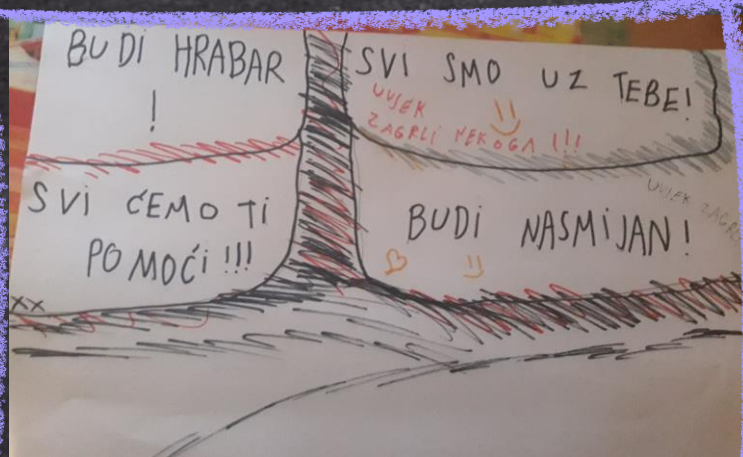 BUDI HRABAR
!
SVI SMO UZ TEBE!
UVJEK
ZAGRLI NEKOGA !!!
SVI ĆEMO TI
POMOĆI!!!
BUDI NASMIJAN!
UVJEK ZAGRLI
XX